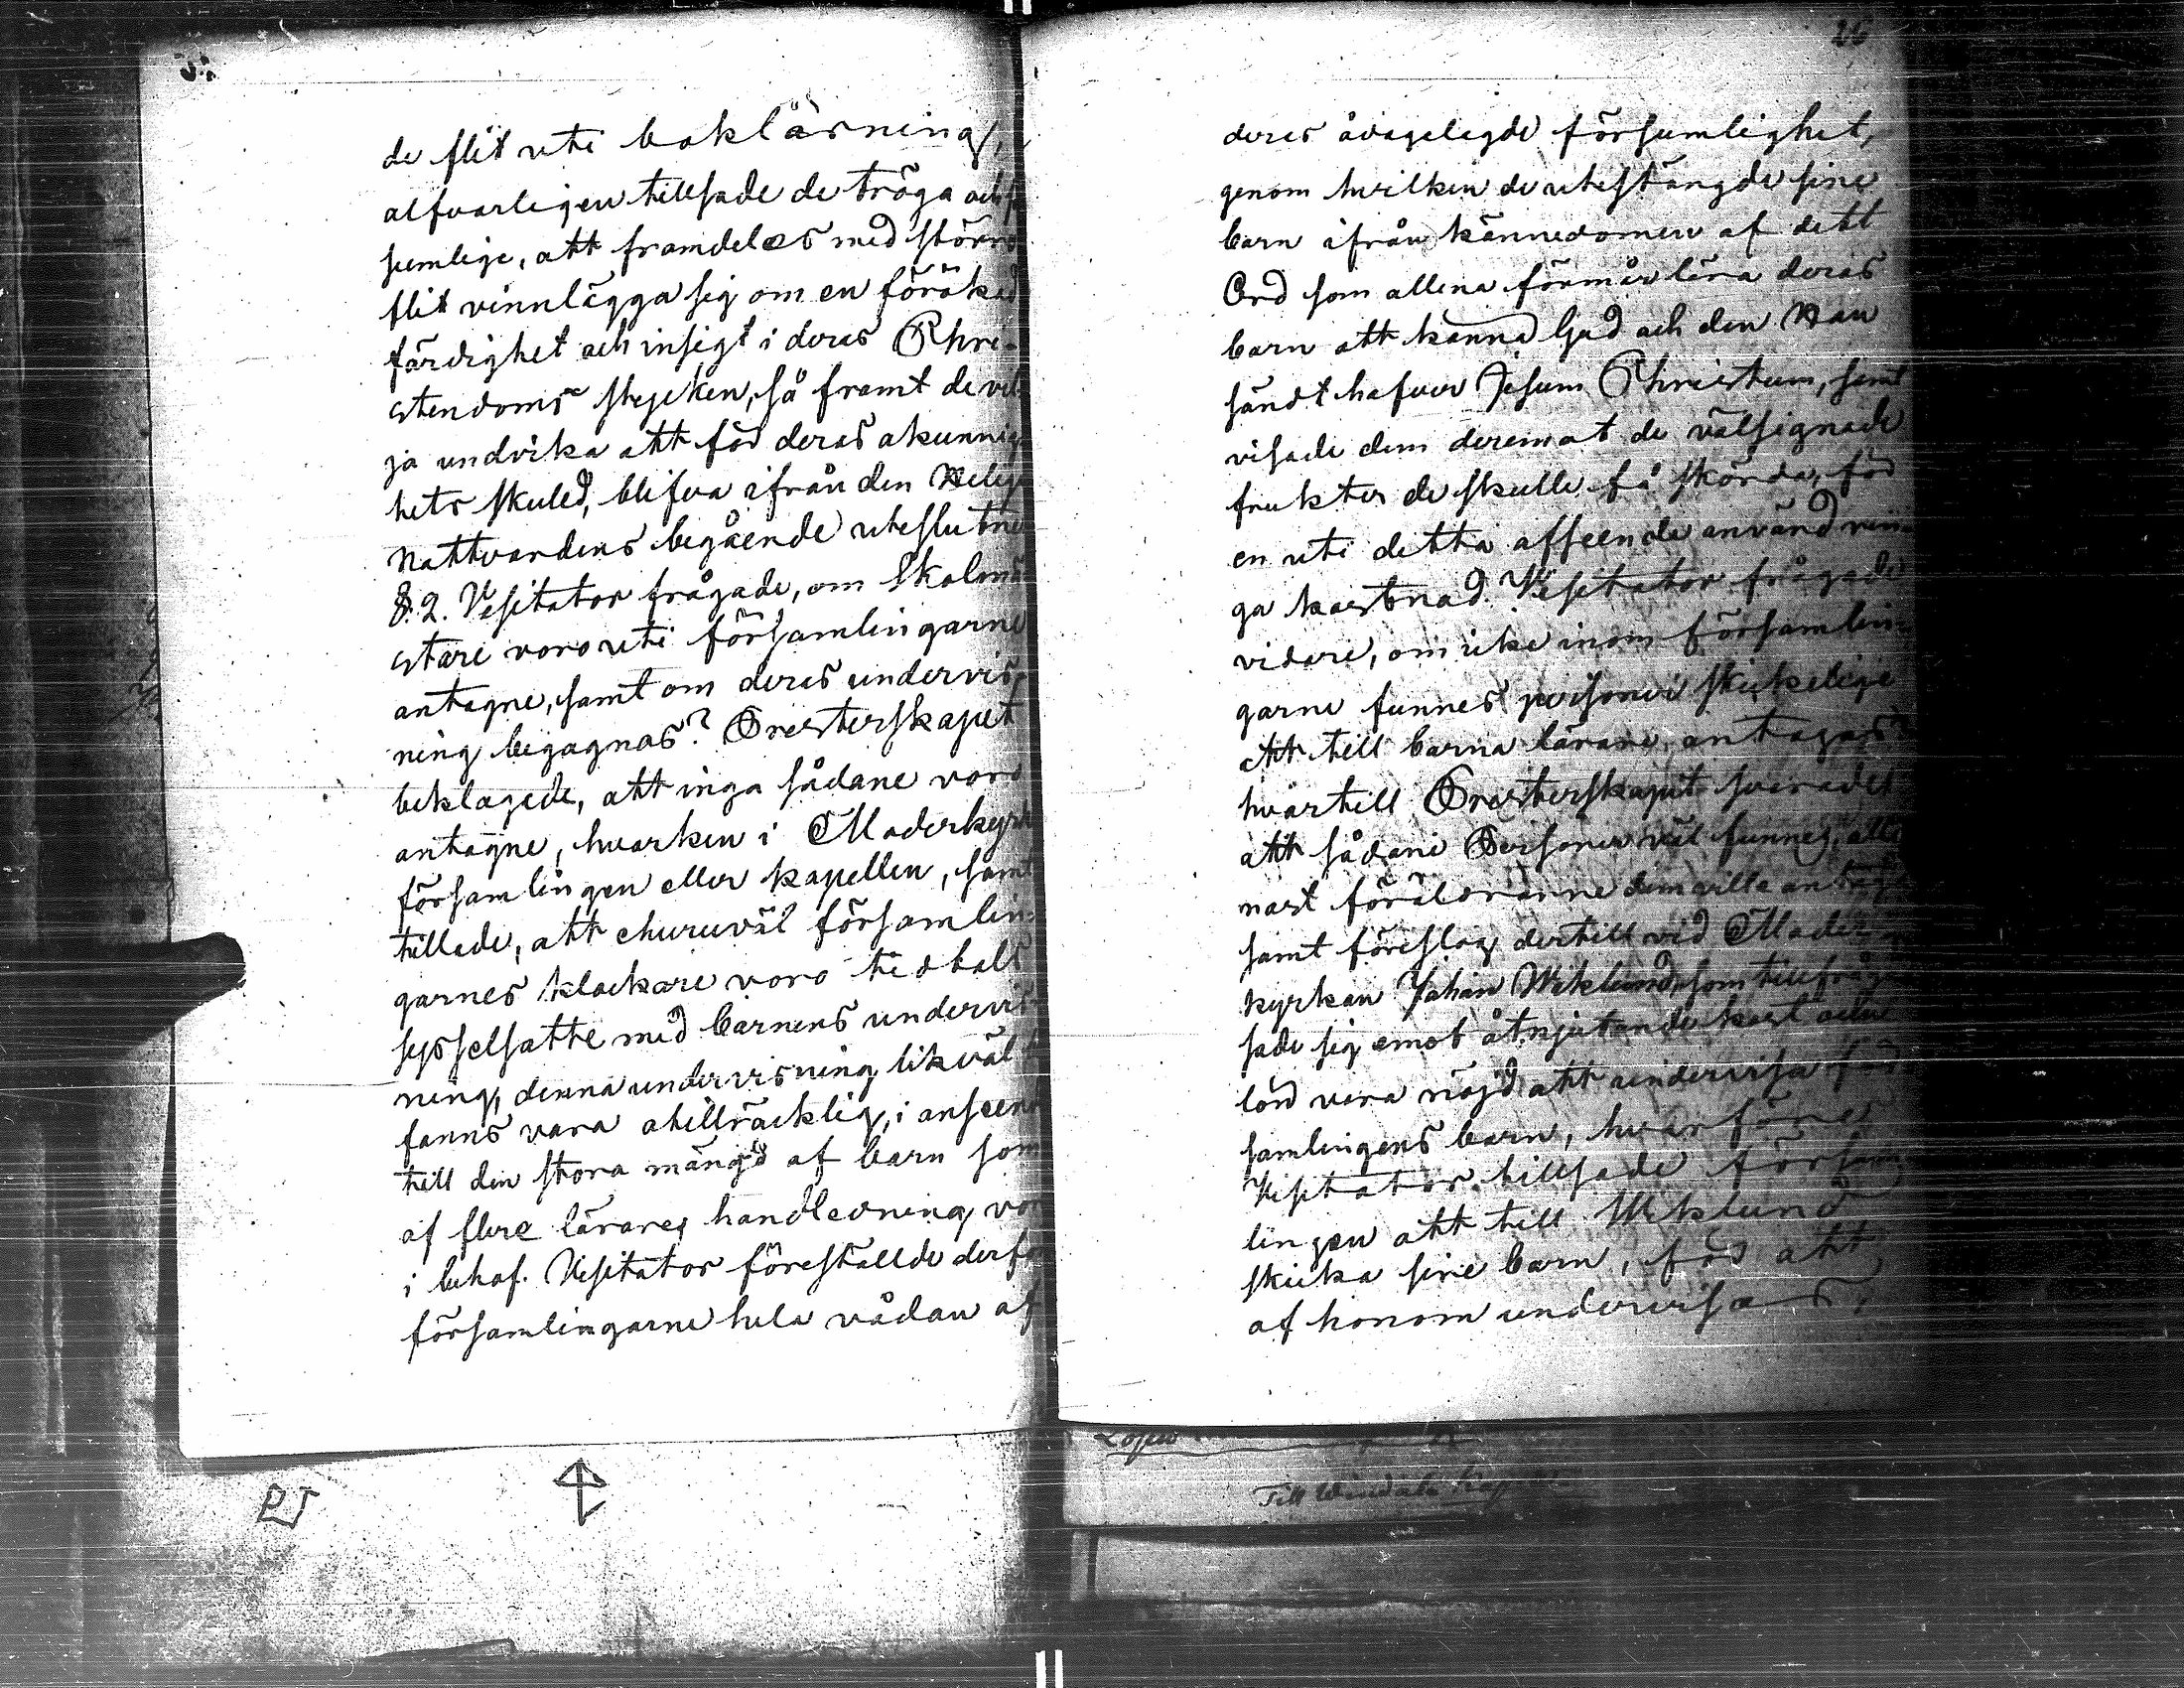 26
de flit uti boklärning,
alfvarligen tillsade de tröga och
sumlige, att framdeles med större
flit vinnlägga sig om en förökad
färdighet och insigt i deras Chri-
stendoms stycken, så framt de vil
ja undvika att för deras okunnig
hets skuld, blifva ifrån den Helige
Nattvardens begående uteslutne
§.2. Visitator frågade, om Skolmä
stare voro uti församlingarne
antagne, samt om deras undervis-
ning begagnas? Presterskapet
beklagade, att inga sådane voro
antagne, hvarken i Moderkyrk
församlingen eller kapellen, samt
tillade, att ehuruväl församlin-
garnes klockare voro tidtals
sysselsatte med barnens undervis-
ning, denna undervisning likväl
fanns vara otillräcklig, i anseen
till den stora mängd af barn som
af flere lärares handledning, vor
i behof. Visitator föreställde derför
församlingarne hela vådan af
deras ådagalagde försumlighet,
genom hvilken de utestängde sine
barn ifrån kännedomen af dett
Ord som allena förmår lära deras
barn att känna Gud och den Han
sändt hafver Jesum Christum, samt
visade dem deremot de välsignade
frukter de skulle få skörda, för
en uti detta afseende använd rin-
ga kostnad. Visitator frågade
vidare, om icke inom församlin-
garne funnes personer skickelige
att till barna lärare antagas?
hvartill Presterskapet svarade
att sådane Personer väl funnes, alle
nast föräldrarne dem ville antaga
samt föreslog dertill vid Moder
kyrkan Johan Wiklund, som tillfråg
sade sig emot åtnjutande kost och
lön vara nöjd att undervisa för
samlingens barn, hvarföre
Visitator tillsade försam
lingen att till Wiklund
skicka sine barn, för att
af honom undervisas,
Till